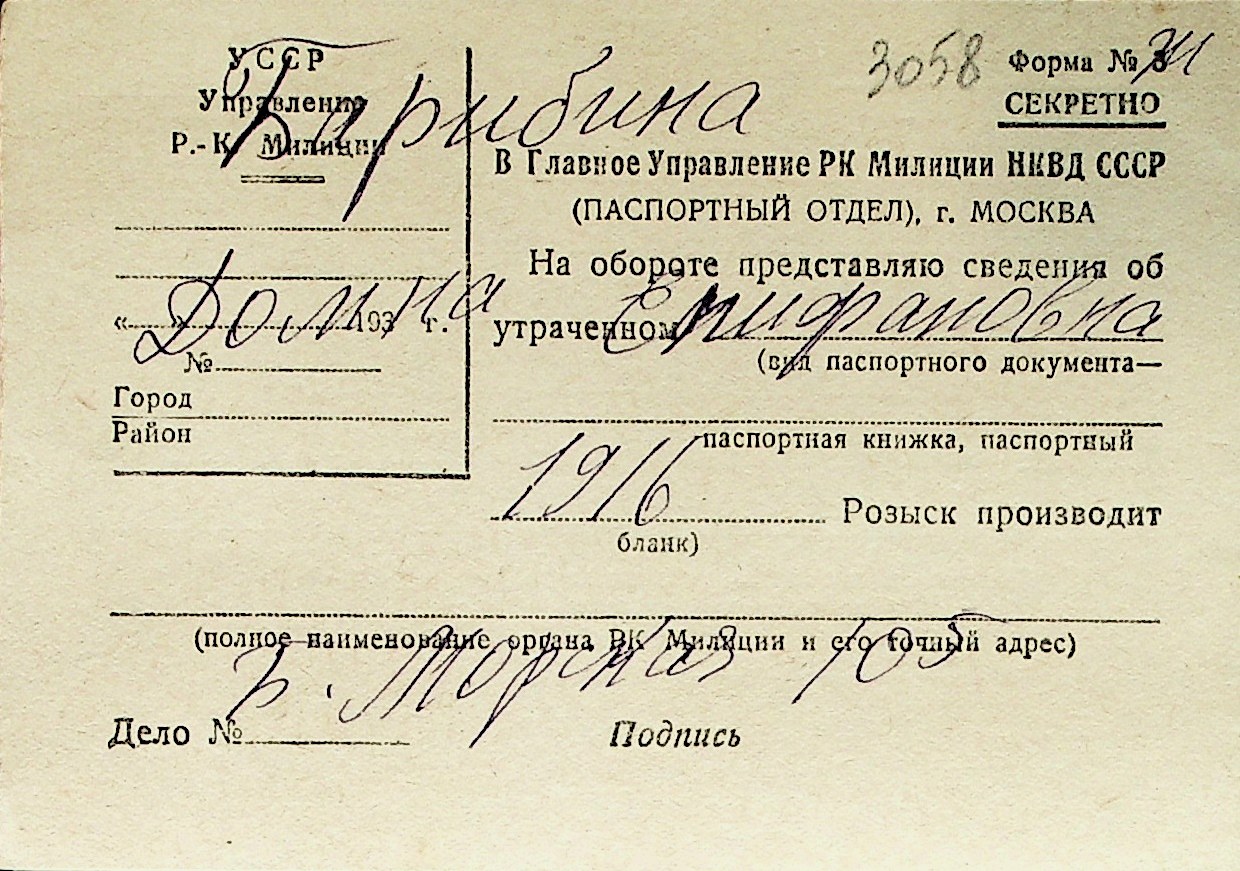 УССР
Управление
Р.-К. Милиции
3058
Форма № 3
СЕКРЕТНО
Гарибина
В Главное Управление РК Милиции НКВД СССР
(ПАСПОРТНЫЙ ОТДЕЛ), г. МОСКВА
На обороте представляю сведения об
«___»___193 г.
Домна
утраченном
Епифановна
№
(вид паспортного документа—
Город
Район
паспортная книжка, паспортный
1916
Розыск производит
бланк)
(полное наименование органа РК Милиции и его точный адрес)
Б. Морская 105
Дело №
Подпись